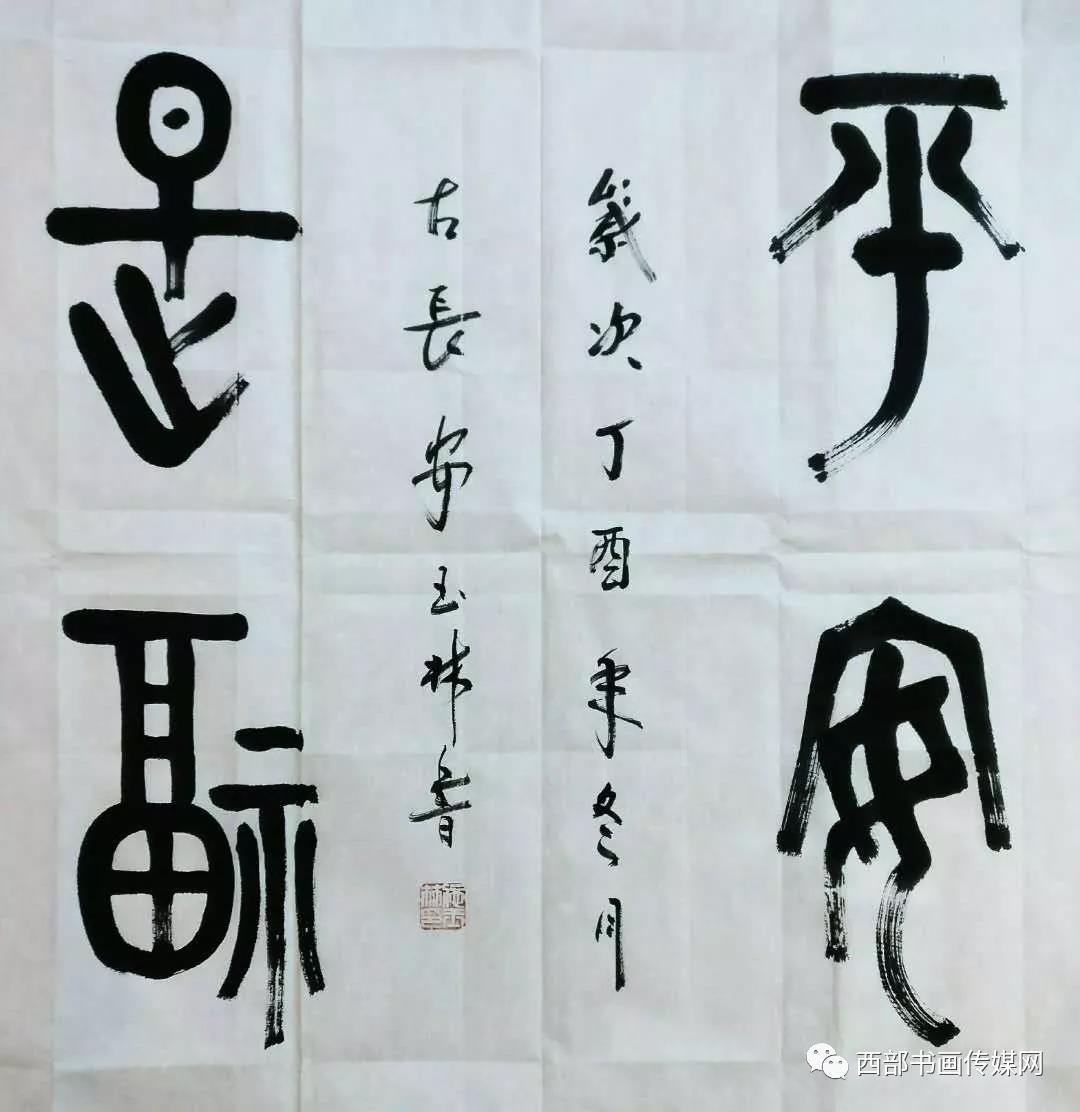 平安
是福
歲次丁酉年冬月
古長安玉林書
西部书画传媒网